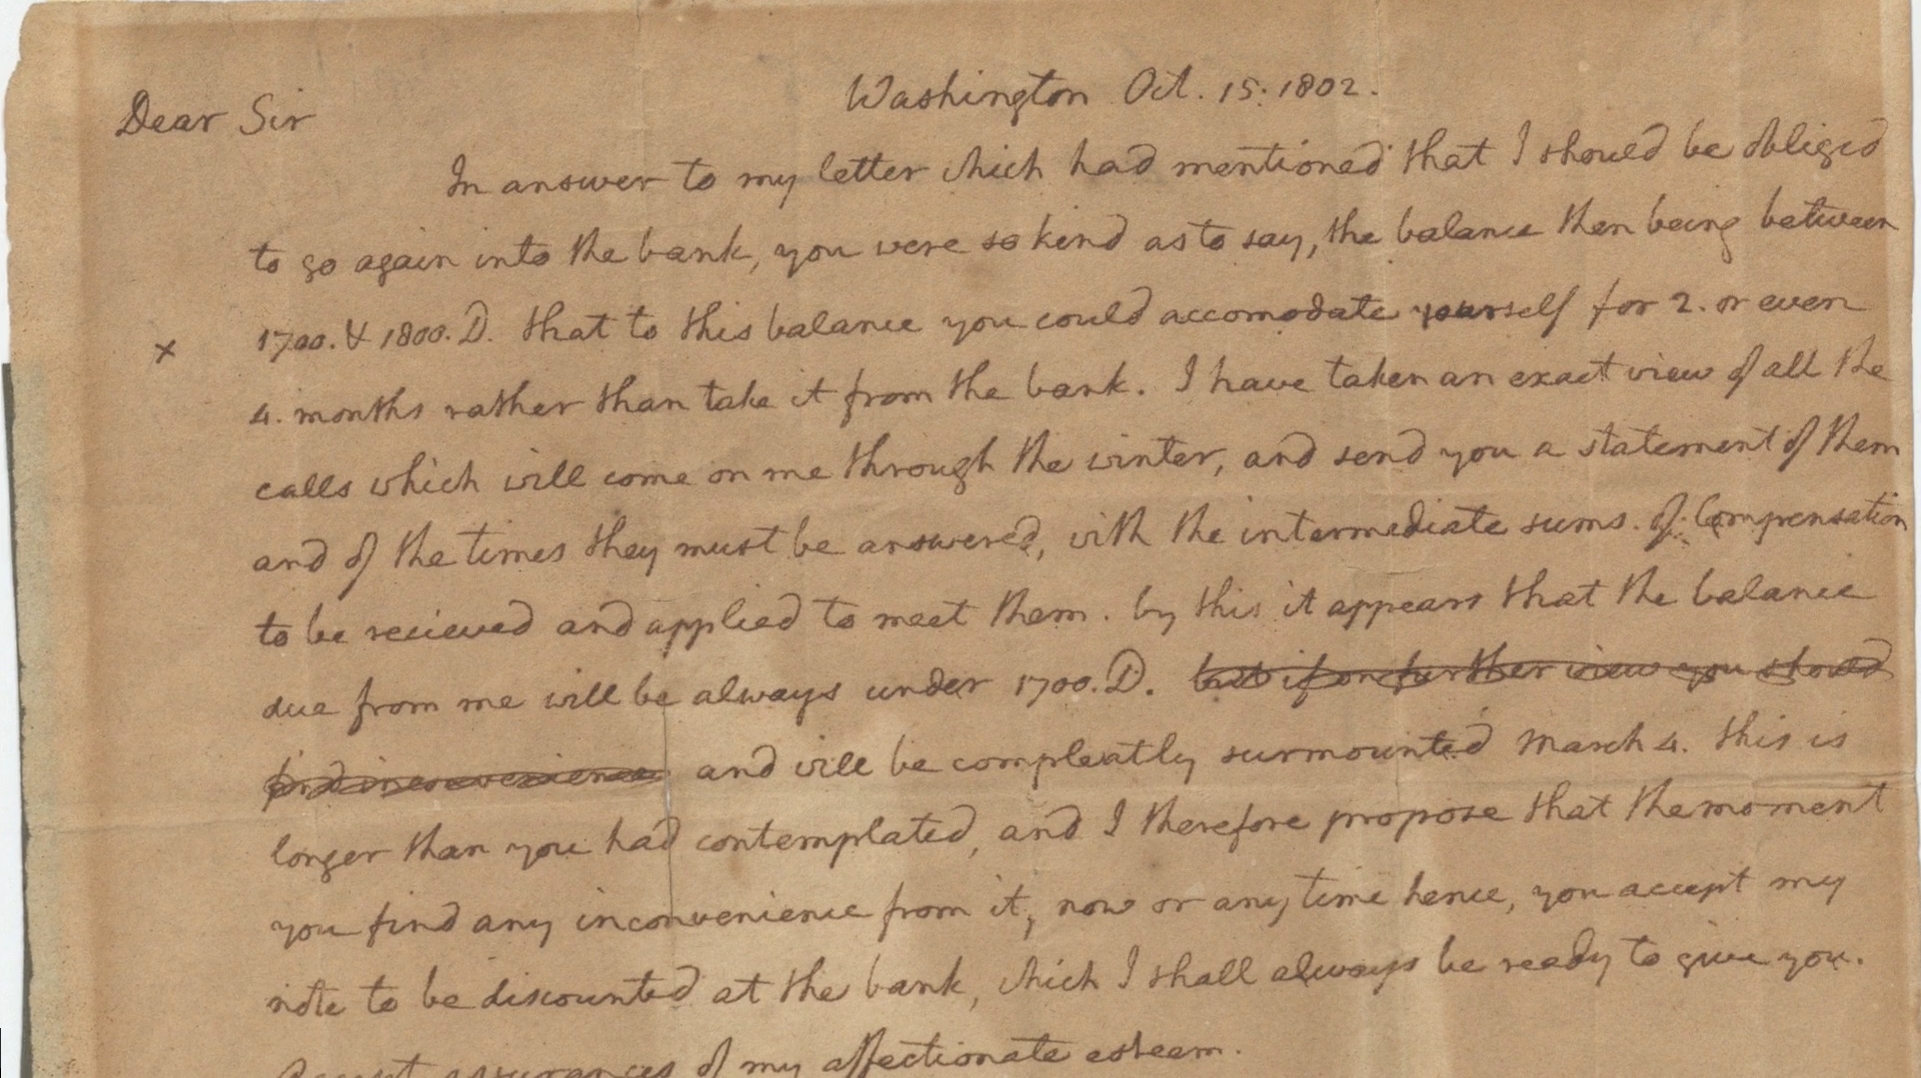 Washington Oct. 15. 1802.
Dear Sir
In answer to my letter which had mentioned that I should be obliged
to go again into the bank, you were so kind as to say, the balance then being between
x 1700. & 1800. D. that to this balance you could accomodate yourself for 2. or even
4. months rather than take it from the bank. I have taken an exact view of all the
calls which will come on me through the winter, and send you a statement of them
and of the times they must be answered, with the intermediate sums of Compensation
to be recieved and applied to meet them. by this it appears that the balance
due from me will be always under 1700. D. but if on further view you should
find inconvenience and will be compleatly surmounted March 4. this is
longer than you had contemplated, and I therefore propose that the moment
you find any inconvenience from it, now or any time hence, you accept my
note to be discounted at the bank, which I shall always be ready to give you.
Accept assurances of my affectionate esteem.